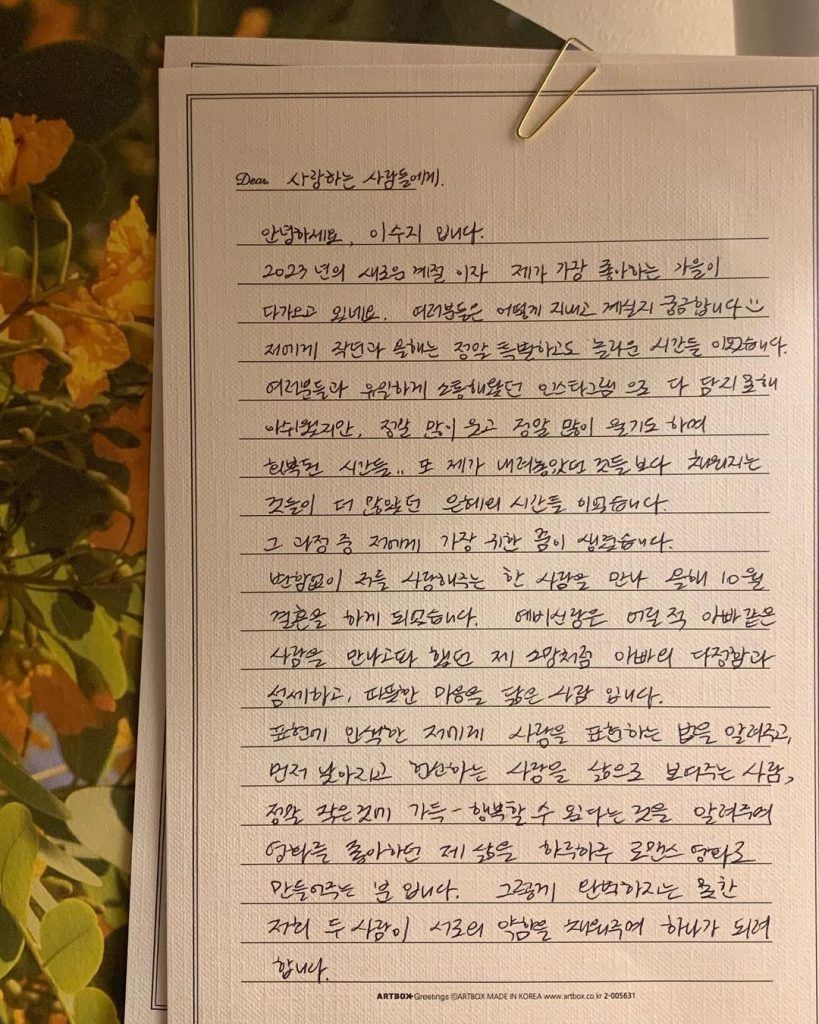 Dear. 사랑하는 사람들에게.
안녕하세요, 이수지 입니다.
2023년의 새로운 계절 이자 제가 가장 좋아하는 가을이
다가오고 있네요. 여러분들은 어떻게 지내고 계실지 궁금합니다
저에게 작년과 올해는 정말 특별하고도 놀라운 시간들 이였습니다.
여러분들과 유일하게 소통해왔던 인스타그램 으로 다 담지 못해
아쉬웠지만, 정말 많이 웃고 정말 많이 울기도 하며
회복된 시간들.. 또 제가 내려놓았던 것들 보다 채워지는
것들이 더 많았던 은혜의 시간들 이였습니다.
그 과정 중 저에게 가장 귀한 꿈이 생겼습니다.
변함없이 저를 사랑해주는 한 사람을 만나 올해 10월
결혼을 하게 되었습니다. 예비신랑은 어릴 적 아빠 같은
사람을 만나고파 했던 제 소망처럼 아빠의 다정함과
섬세하고, 따뜻한 마음을 닮은 사람 입니다.
표현에 인색한 저에게 사랑을 표현하는 법을 알려주고,
먼저 낮아지고 헌신하는 사랑을 삶으로 보여주는 사람,
정말 작은것에 가득- 행복할 수 있다는 것을 알려주며
영화를 좋아하던 제 삶을 하루하루 로맨스 영화로
만들어주는 분 입니다. 그렇게 완벽하지는 못한
저희 두 사람이 서로의 약함을 채워주며 하나가 되려
합니다.
ARTBOX Greetings ⓒARTBOX MADE IN KOREA www.artbox.co.kr 2-005631